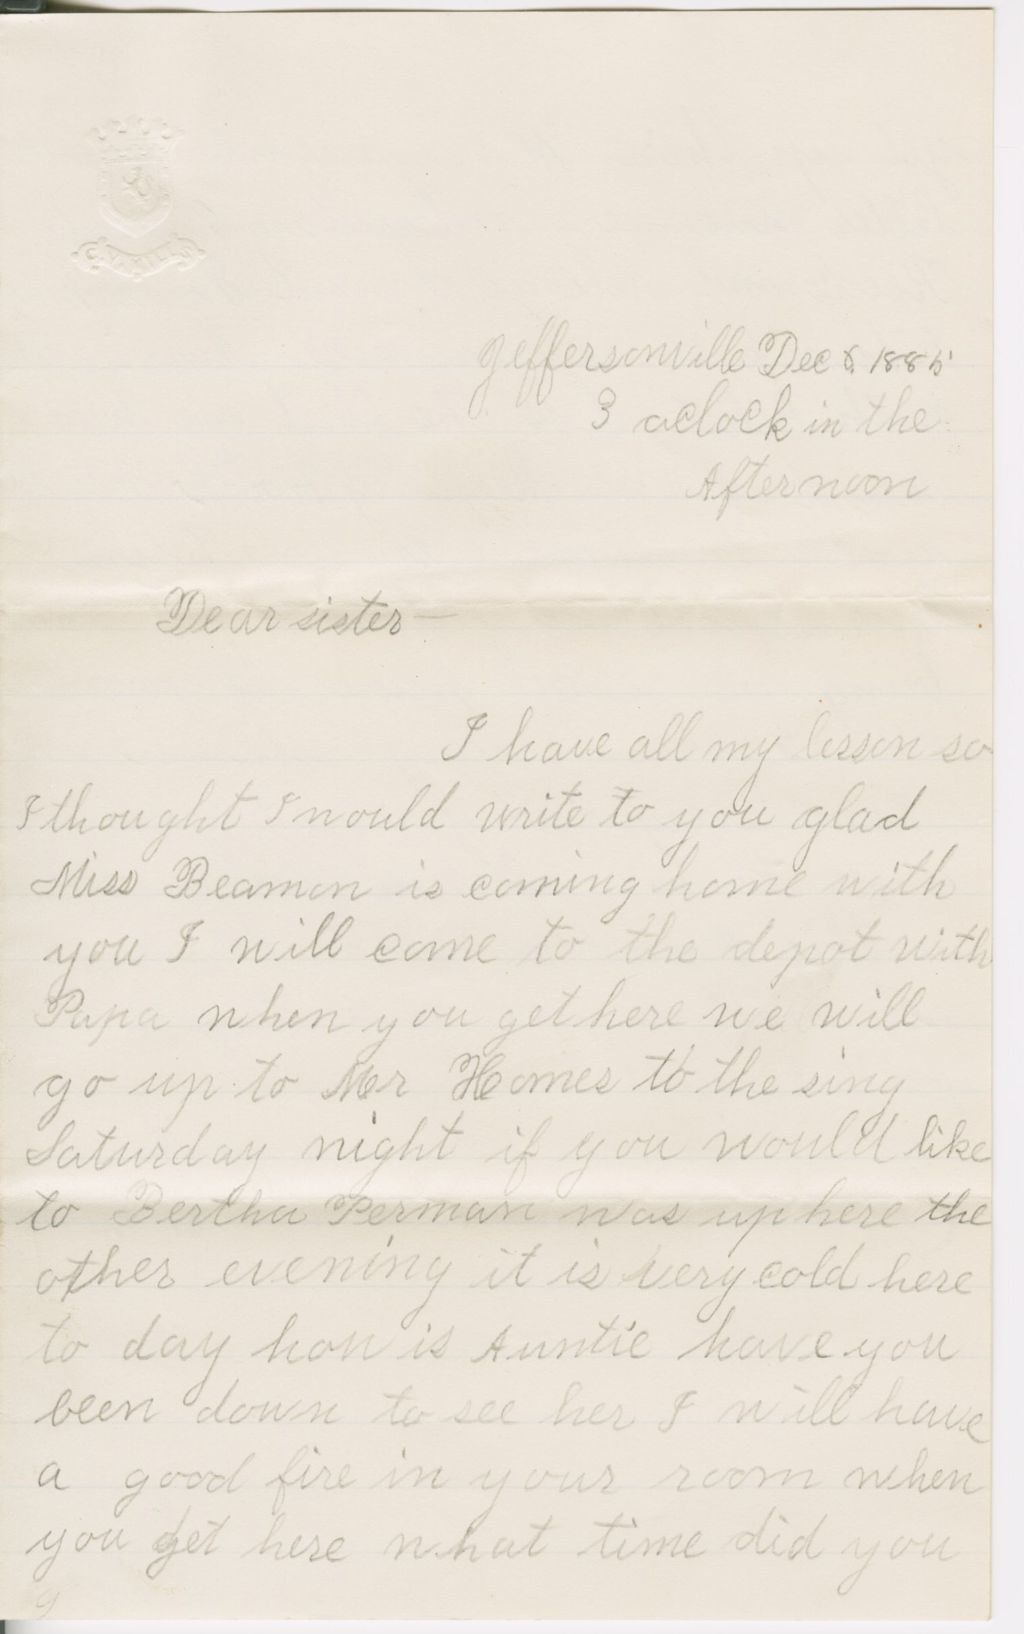 C. V. MILLS
Jeffersonville Dec 8. 1885
3 aclock in the
Afternoon
Dear sister —
I have all my lesson so
I thought I would write to you glad
Miss Beamon is coming home with
you I will come to the depot with
Papa when you get here we will
go up to Mr Homes to the sing
Saturday night if you would like
to Bertha Perman was up here the
other evening it is very cold here
to day how is Auntie have you
been down to see her I will have
a good fire in your room when
you get here what time did you